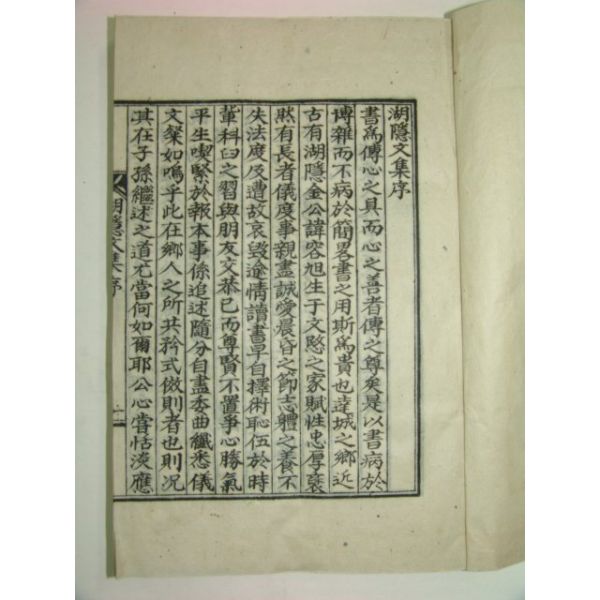 湖隱文集序
書爲傳心之具而心之善者傳之尊矣是以書病於
博雜而不病於簡畧書之用斯爲貴也達城之鄉近
古有湖隱金公諱容旭生于文愍之家賦性忠厚裒
然有長者儀度事親盡誠愛晨昏之節志體之養不
失法度及遭故哀毁逾情讀書早自擇術恥伍於時
軰科臼之習與朋友交恭已而尊賢不置爭心勝氣
平生喫緊於報本事係追述隨分自盡委曲纖悉儀
文粲如嗚乎此在鄉人之所共矜式倣則者也則况
其在子孫繼述之道尤當何如爾耶公心嘗恬淡應
湖隱文集序